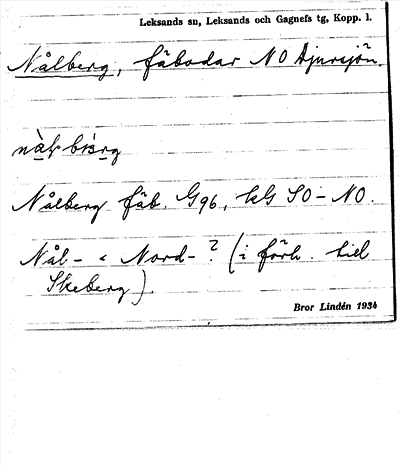 Leksands sn, Leksands och Gagnefs tg, Kopp. l.
Nålberg, fäbodar NO Djursjön.
Nålberg fäb. G96, kG SO-NO.
Nål- < Nord-? (i förh. till
Skeberg).
Bror Lindén 1934